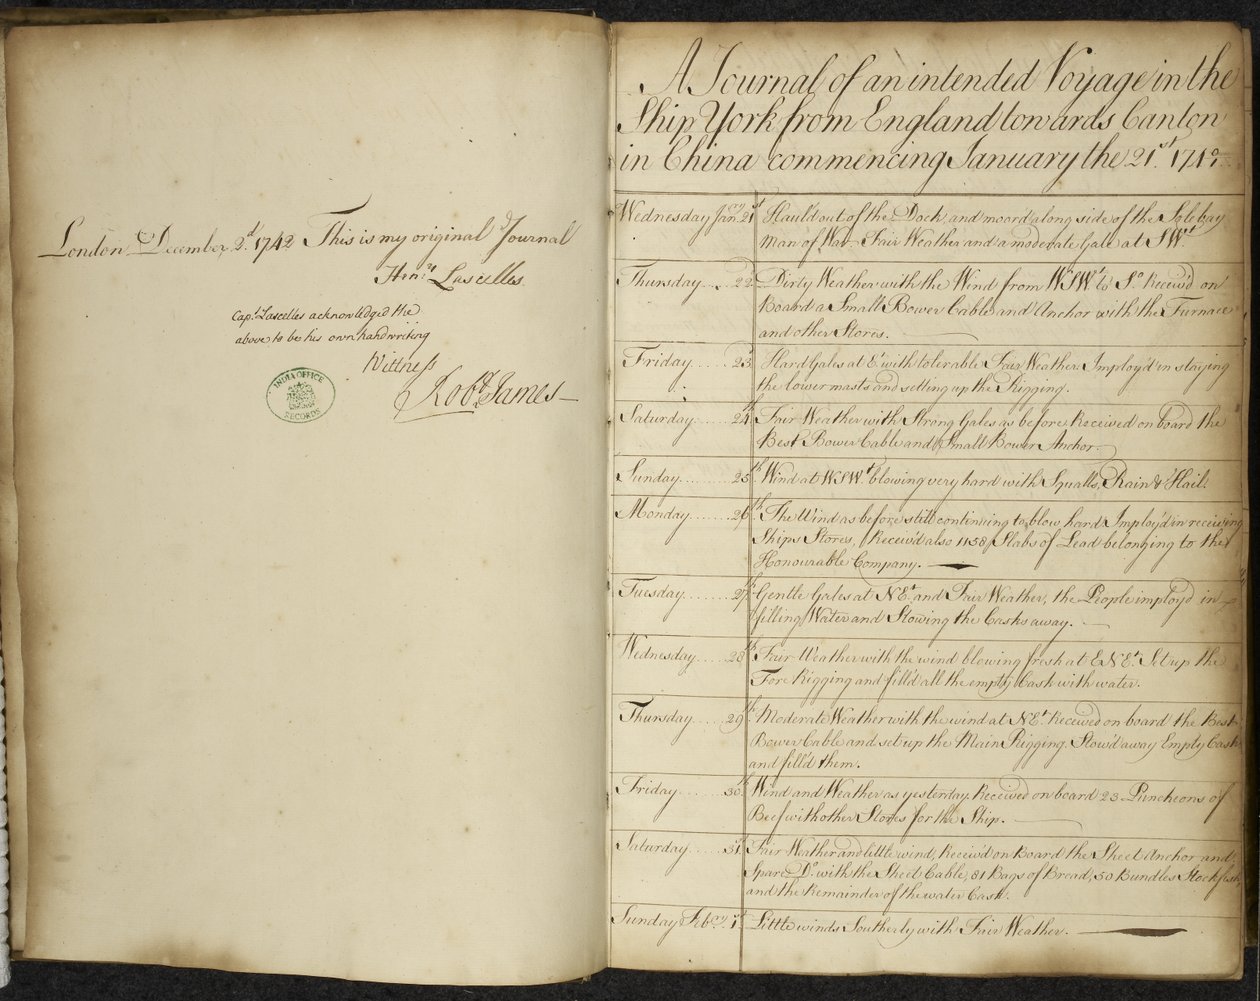 London December 2.d 1742 This is my original Journal
Hen.y Lascelles
Cap.t Lascelles acknowledged the
above to be his own handwriting
Wittness
Rob.t James
INDIA OFFICE
RECORDS
A Journal of an intended Voyage in the
Ship York from England towards Canton
in China commencing January the 21.st 1740
Wednesday Jan.ry 21st Haul'd out of the Dock and moor'd along side of the
Man of War. Fair Weather and a moderate Gale at SW.t
Thursday 22 Dirty Weather with the Wind from WSW.t to S.o Receiv'd on
Board a Small Bower Cable and Anchor with the Furnace
and other Stores.
Friday 23d Hard Gales at E.t with tolerable Fair Weather Imploy'd in staying
the lower masts and setting up the Rigging.
Saturday 24th Fair Weather with Strong Gales as before. Received on board the
Best Bower Cable and Small Bower Anchor.
Sunday 25th Wind at WSW.t blowing very hard with Squalls, Rain & Hail.
Monday 26th The Wind as before still continuing to blow hard Imploy'd in receiving
Ships Stores, Receiv'd also 1138 Slabs of Lead belonging to the
Honourable Company.
Tuesday 27th Gentle Gales at NE.t and Fair Weather, the People imploy'd in
filling Water and Stowing the Casks away.
Wednesday 28th Fair Weather with the wind blowing fresh at ENE.t Set up the
Fore Rigging and fill'd all the empty Cask with water.
Thursday 29th Moderate Weather with the wind at NE.t Received on board the Best
Bower Cable and set up the Main Rigging. Stow'd away Empty Cask
and fill'd them.
Friday 30th Wind and Weather as yesterday. Received on board 23 Puncheons of
Beef with other Stores for the Ship.
Saturday 31st Fair Weather and little wind, Receiv'd on Board the Sheet Anchor and
Spare D.o with the Sheet Cable, 81 Bags of Bread, 50 Bundles Stockfish
and the Remainder of the water Cask.
Sunday Feb.ry 1st Little winds Southerly with Fair Weather.